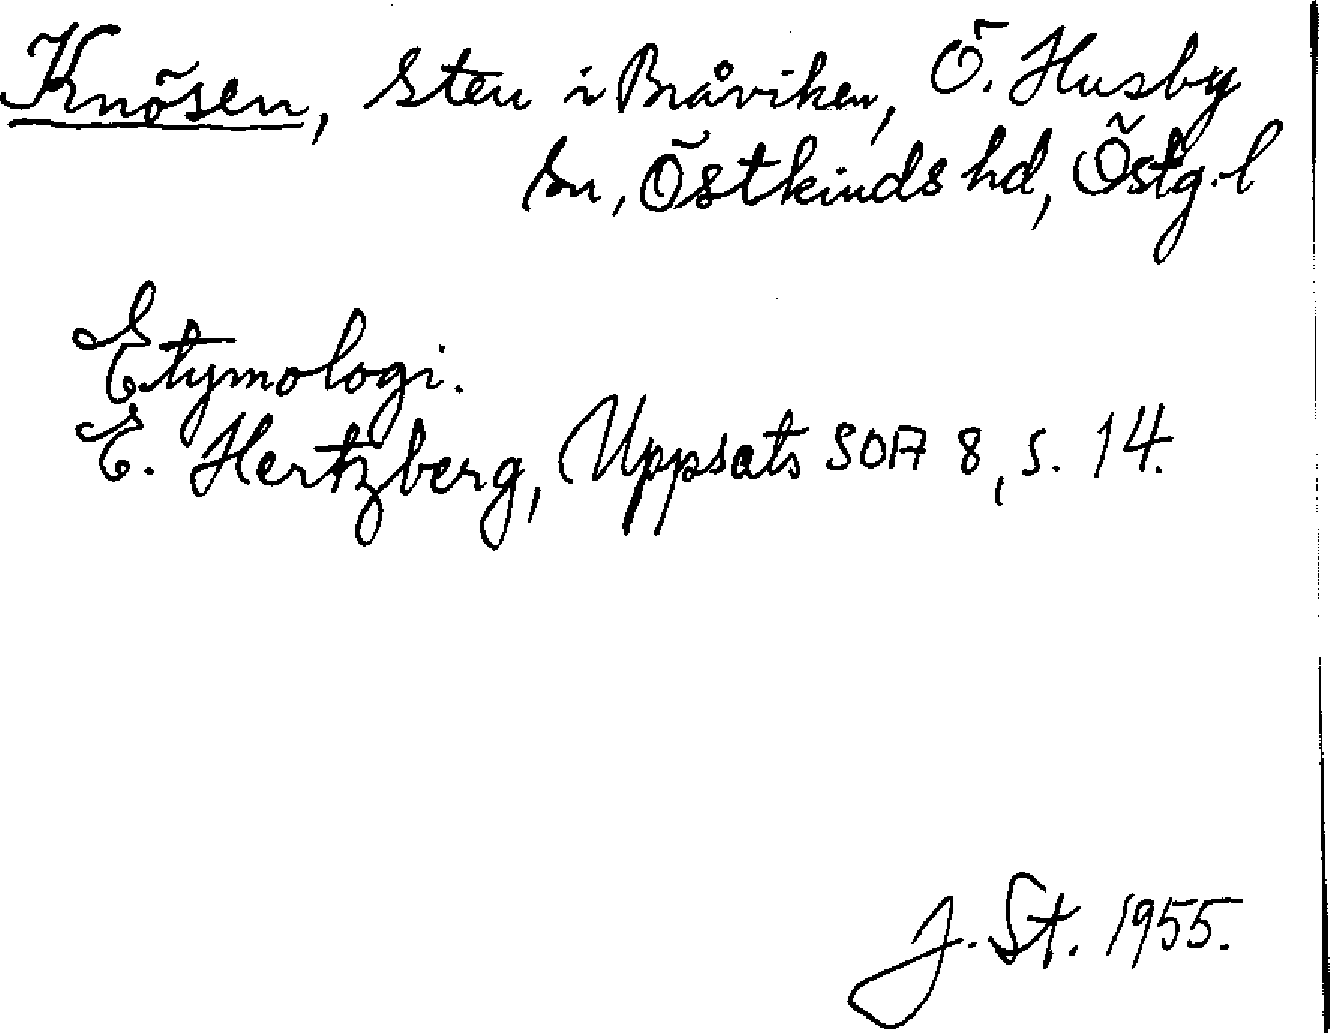 Knösen, Sten i Bråviken, Ö. Husby
sn, Östkinds hd, Östg.l
Etymologi.
E. Hertzberg, Uppsats SOA 8, s. 14.
J. St. 1955.